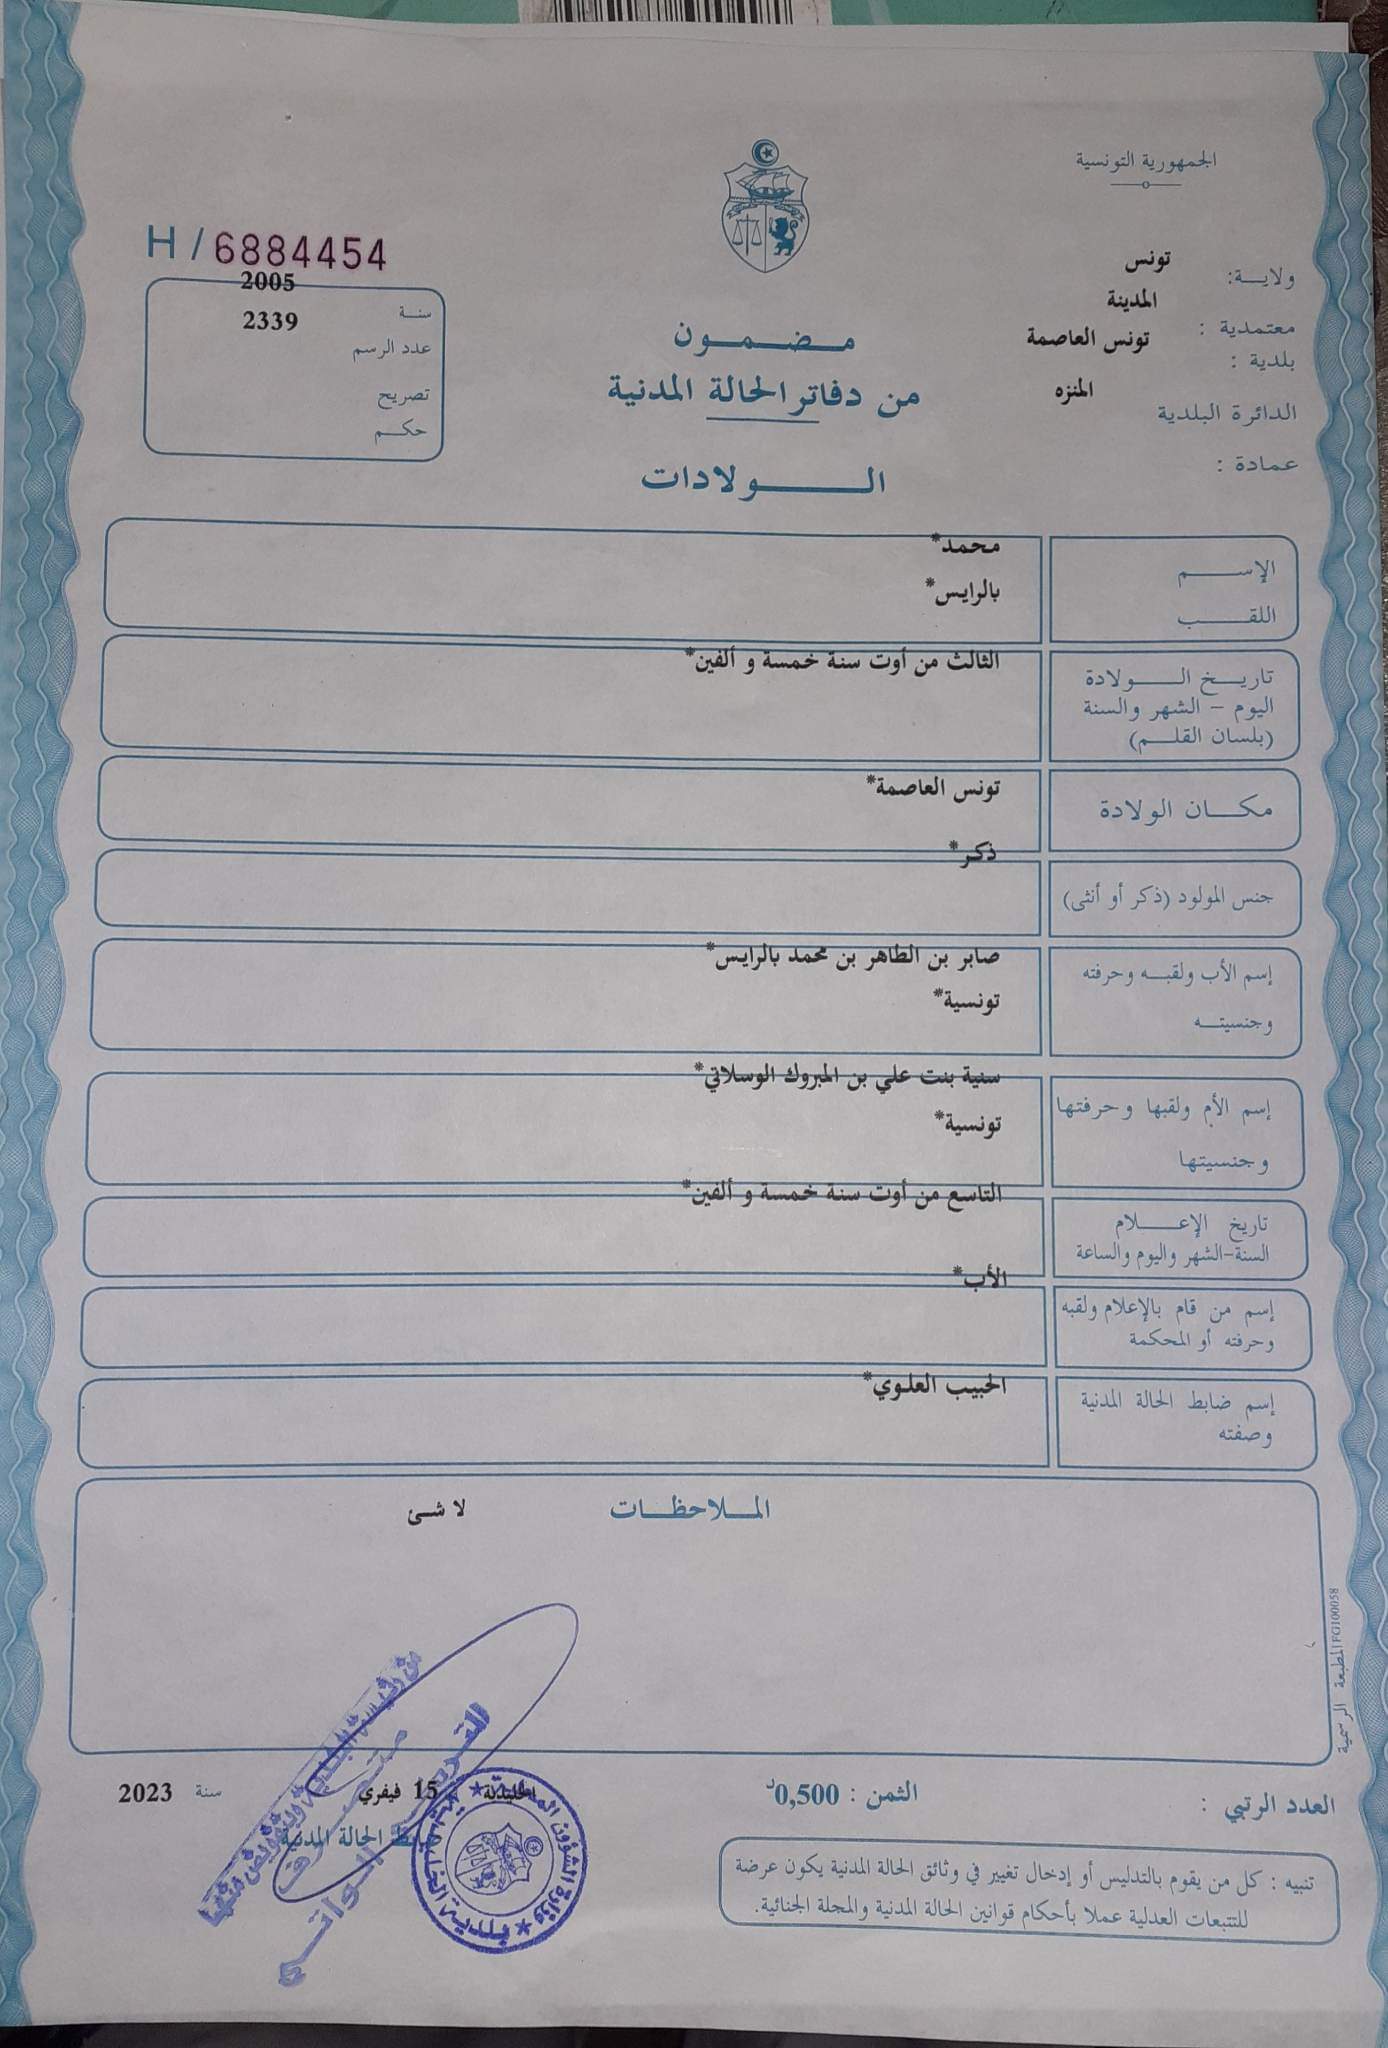 الجمهورية التونسية
ولاية: تونس
معتمدية : المدينة
بلدية : تونس العاصمة
الدائرة البلدية المنزه
عمادة :
H / 6884454
سنة 2005
عدد الرسم 2339
تصريح
حكم
مضمون
من دفاتر الحالة المدنية
الولادات
الإسم محمد*
اللقب بالرايس*
تاريخ الولادة الثالث من أوت سنة خمسة و ألفين*
اليوم - الشهر والسنة
(بلسان القلم)
مكان الولادة تونس العاصمة*
جنس المولود (ذكر أو أنثى) ذكر*
إسم الأب ولقبه وحرفته صابر بن الطاهر بن محمد بالرايس*
وجنسيته تونسية*
إسم الأم ولقبها وحرفتها سنية بنت علي بن المبروك الوسلاتي*
وجنسيتها تونسية*
تاريخ الإعلام التاسع من أوت سنة خمسة و ألفين*
السنة-الشهر واليوم والساعة
إسم من قام بالإعلام ولقبه الأب*
وحرفته أو المحكمة
إسم ضابط الحالة المدنية الحبيب العلوي*
وصفته
الملاحظات لا شئ
المطبعة الرسمية FG100058
العدد الرتبي :
الثمن : 0,500د
15 فيفري سنة 2023
ضابط الحالة المدنية
تنبيه : كل من يقوم بالتدليس أو إدخال تغيير في وثائق الحالة المدنية يكون عرضة
للتتبعات العدلية عملا بأحكام قوانين الحالة المدنية والمجلة الجنائية.